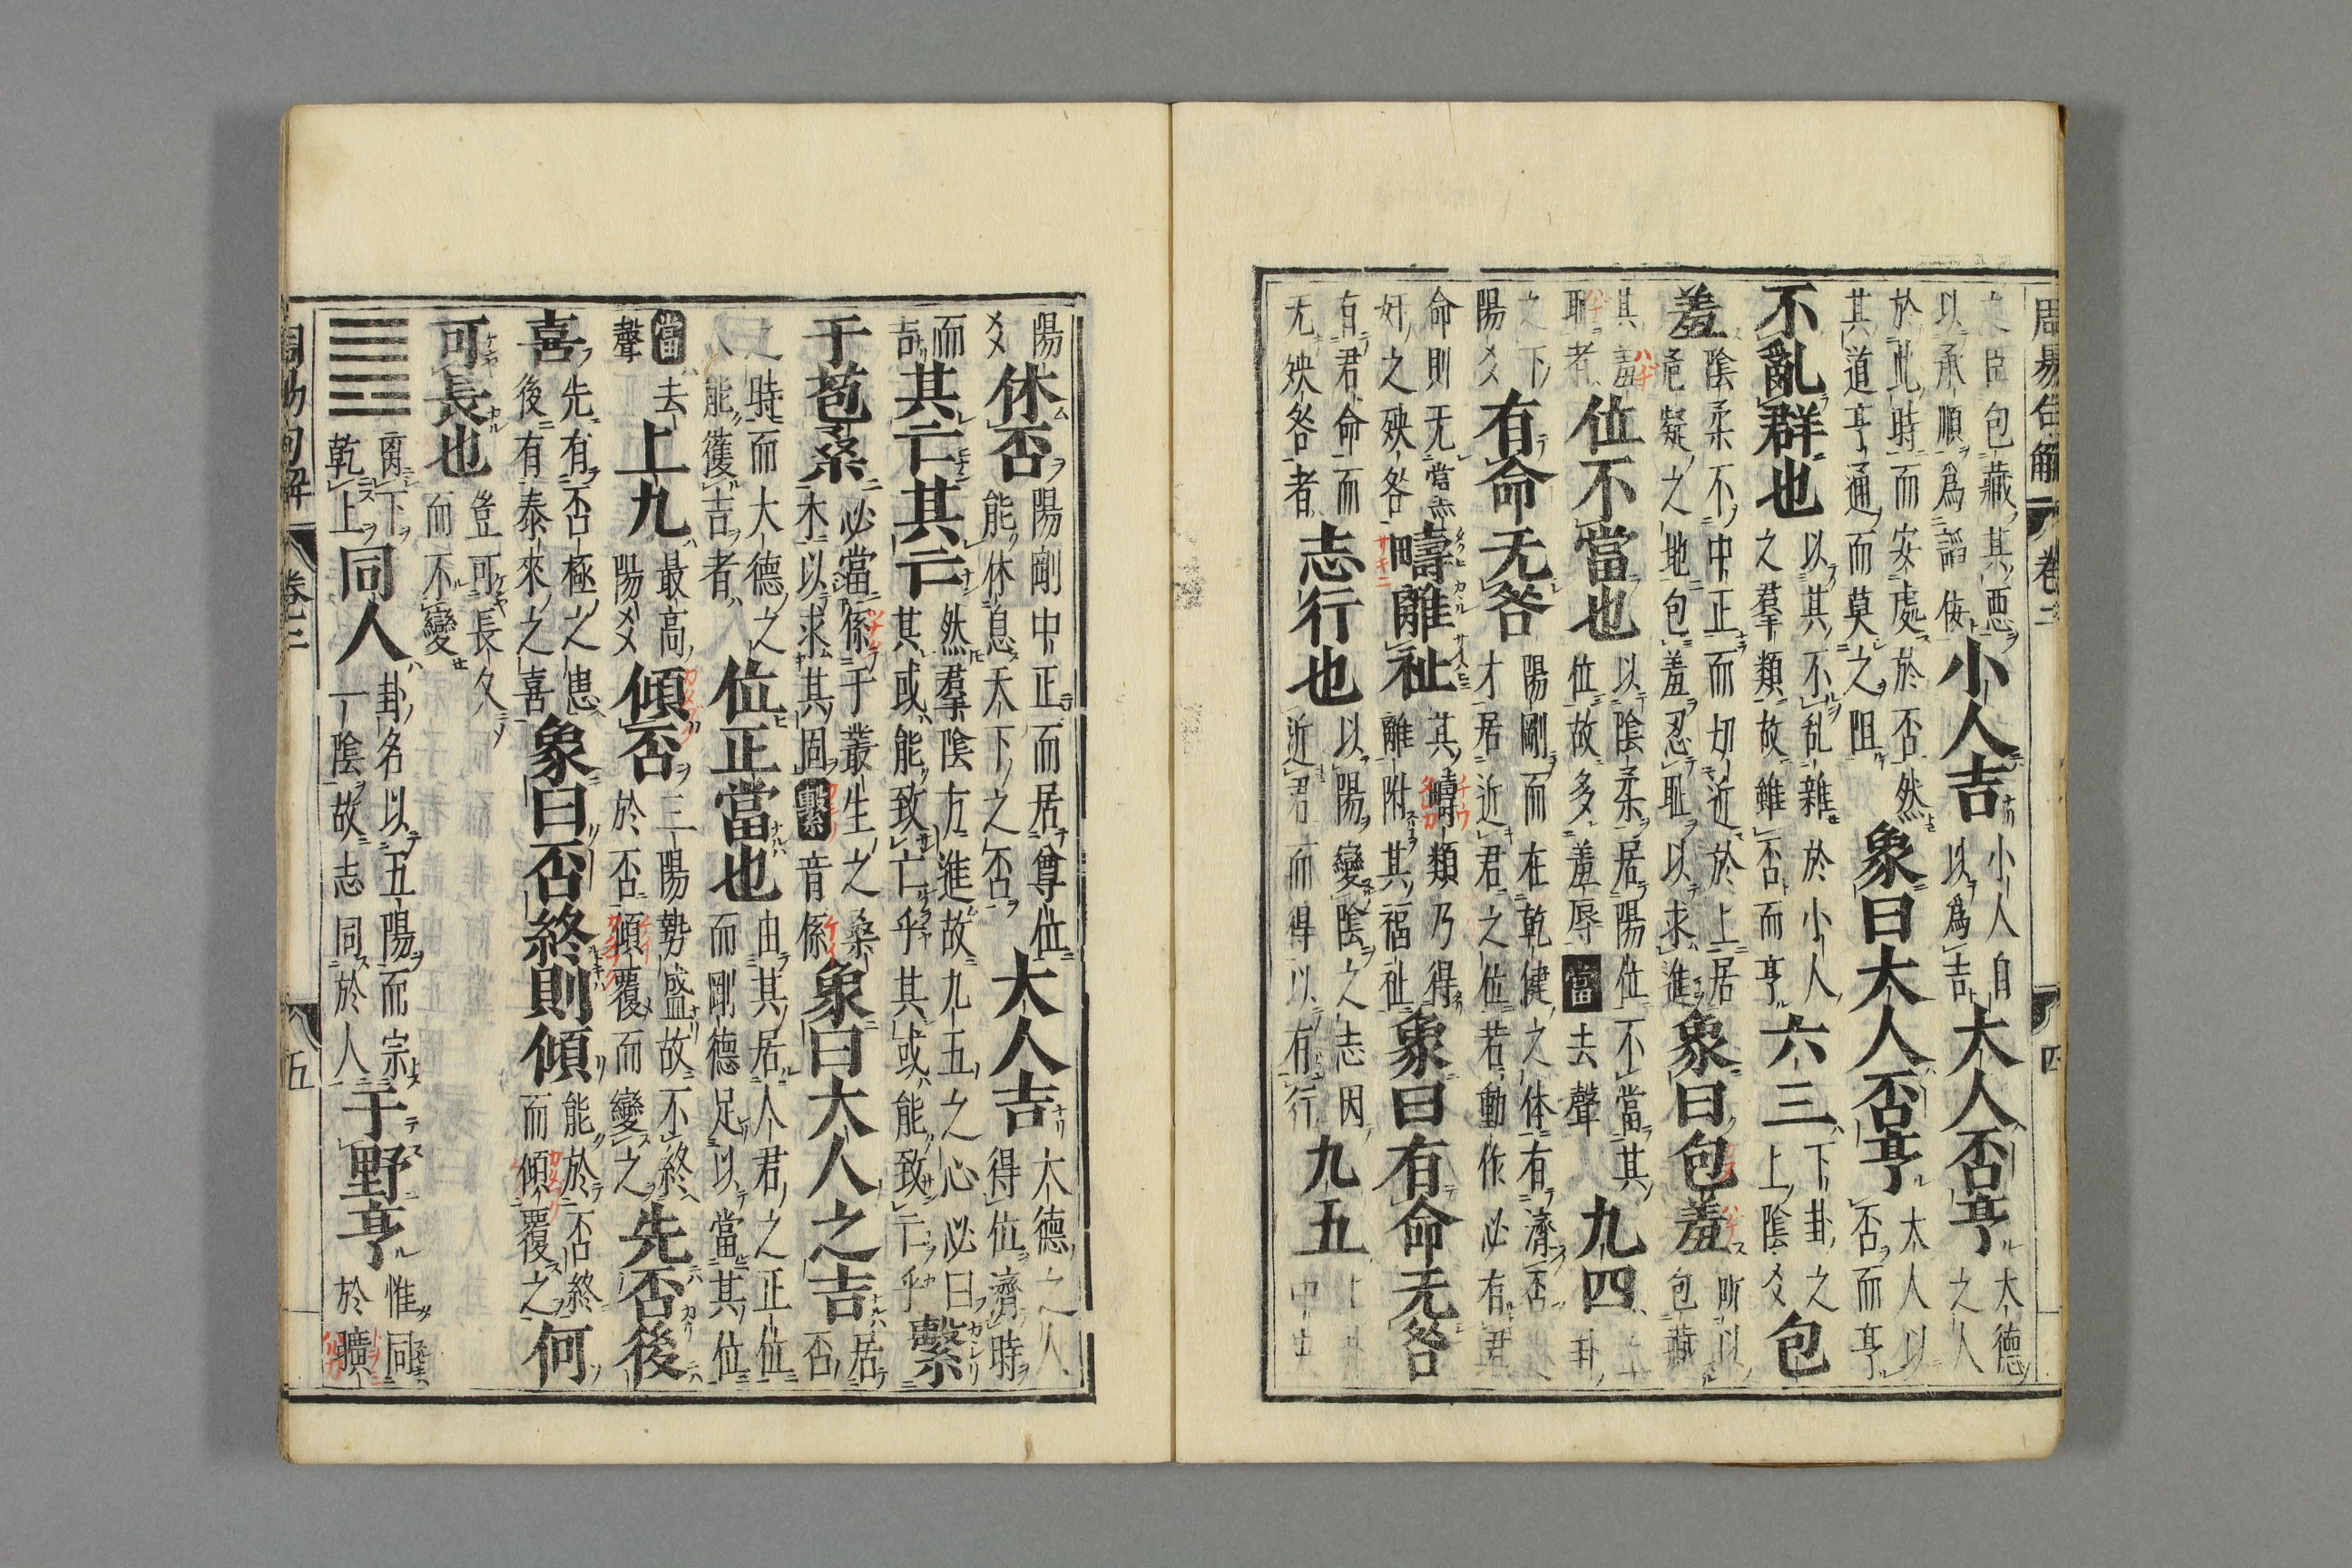 周易句解 卷三 四
之臣包藏其惡以承順爲謟侫小人吉小人自以爲吉大人否亨大德之人
於此時而安處於否然其道亨通而莫之阻象曰大人否亨大人以否而亨
不亂群也以其不乱雜於小人之羣類故雖否而亨六三下卦之上陰爻包
羞陰柔不中正而切近於上居危疑之地包羞忍耻以求進象曰包羞所以包藏
其羞耻者位不當也以陰柔居陽位不當其位故多羞辱當去聲九四上卦
之下陽爻有命无咎陽剛而在乾健之体有濟否之才居近君之位若動作必有君
命則无奸之殃咎疇離祉其疇類乃得離附其福祉象曰有命无咎
有君命而无殃咎者志行也以陽變陰之志因近君而得以有行九五上卦中
陽爻休否陽剛中正而居尊位能休息天下之否大人吉大德之人得位濟時
而吉其亡其亡然羣陰方進故九五之心必曰其或能致亡乎其或能致亡乎繫
于苞桑必當係于叢生之桑木以求其固繫音係象曰大人之吉居否
之時而大德之人能獲吉者位正當也由其居人君之正位而剛德足以當其位
當去聲上九最高陽爻傾否三陽勢盛故不終於否傾覆而變之先否後
喜先有否極之患後有泰來之喜象曰否終則傾能於否終而傾覆之何
可長也豈可長久而不變
離下乾上同人卦名以五陽而宗一陰故志同於人于野亨惟同於曠
周易句解 卷三 五